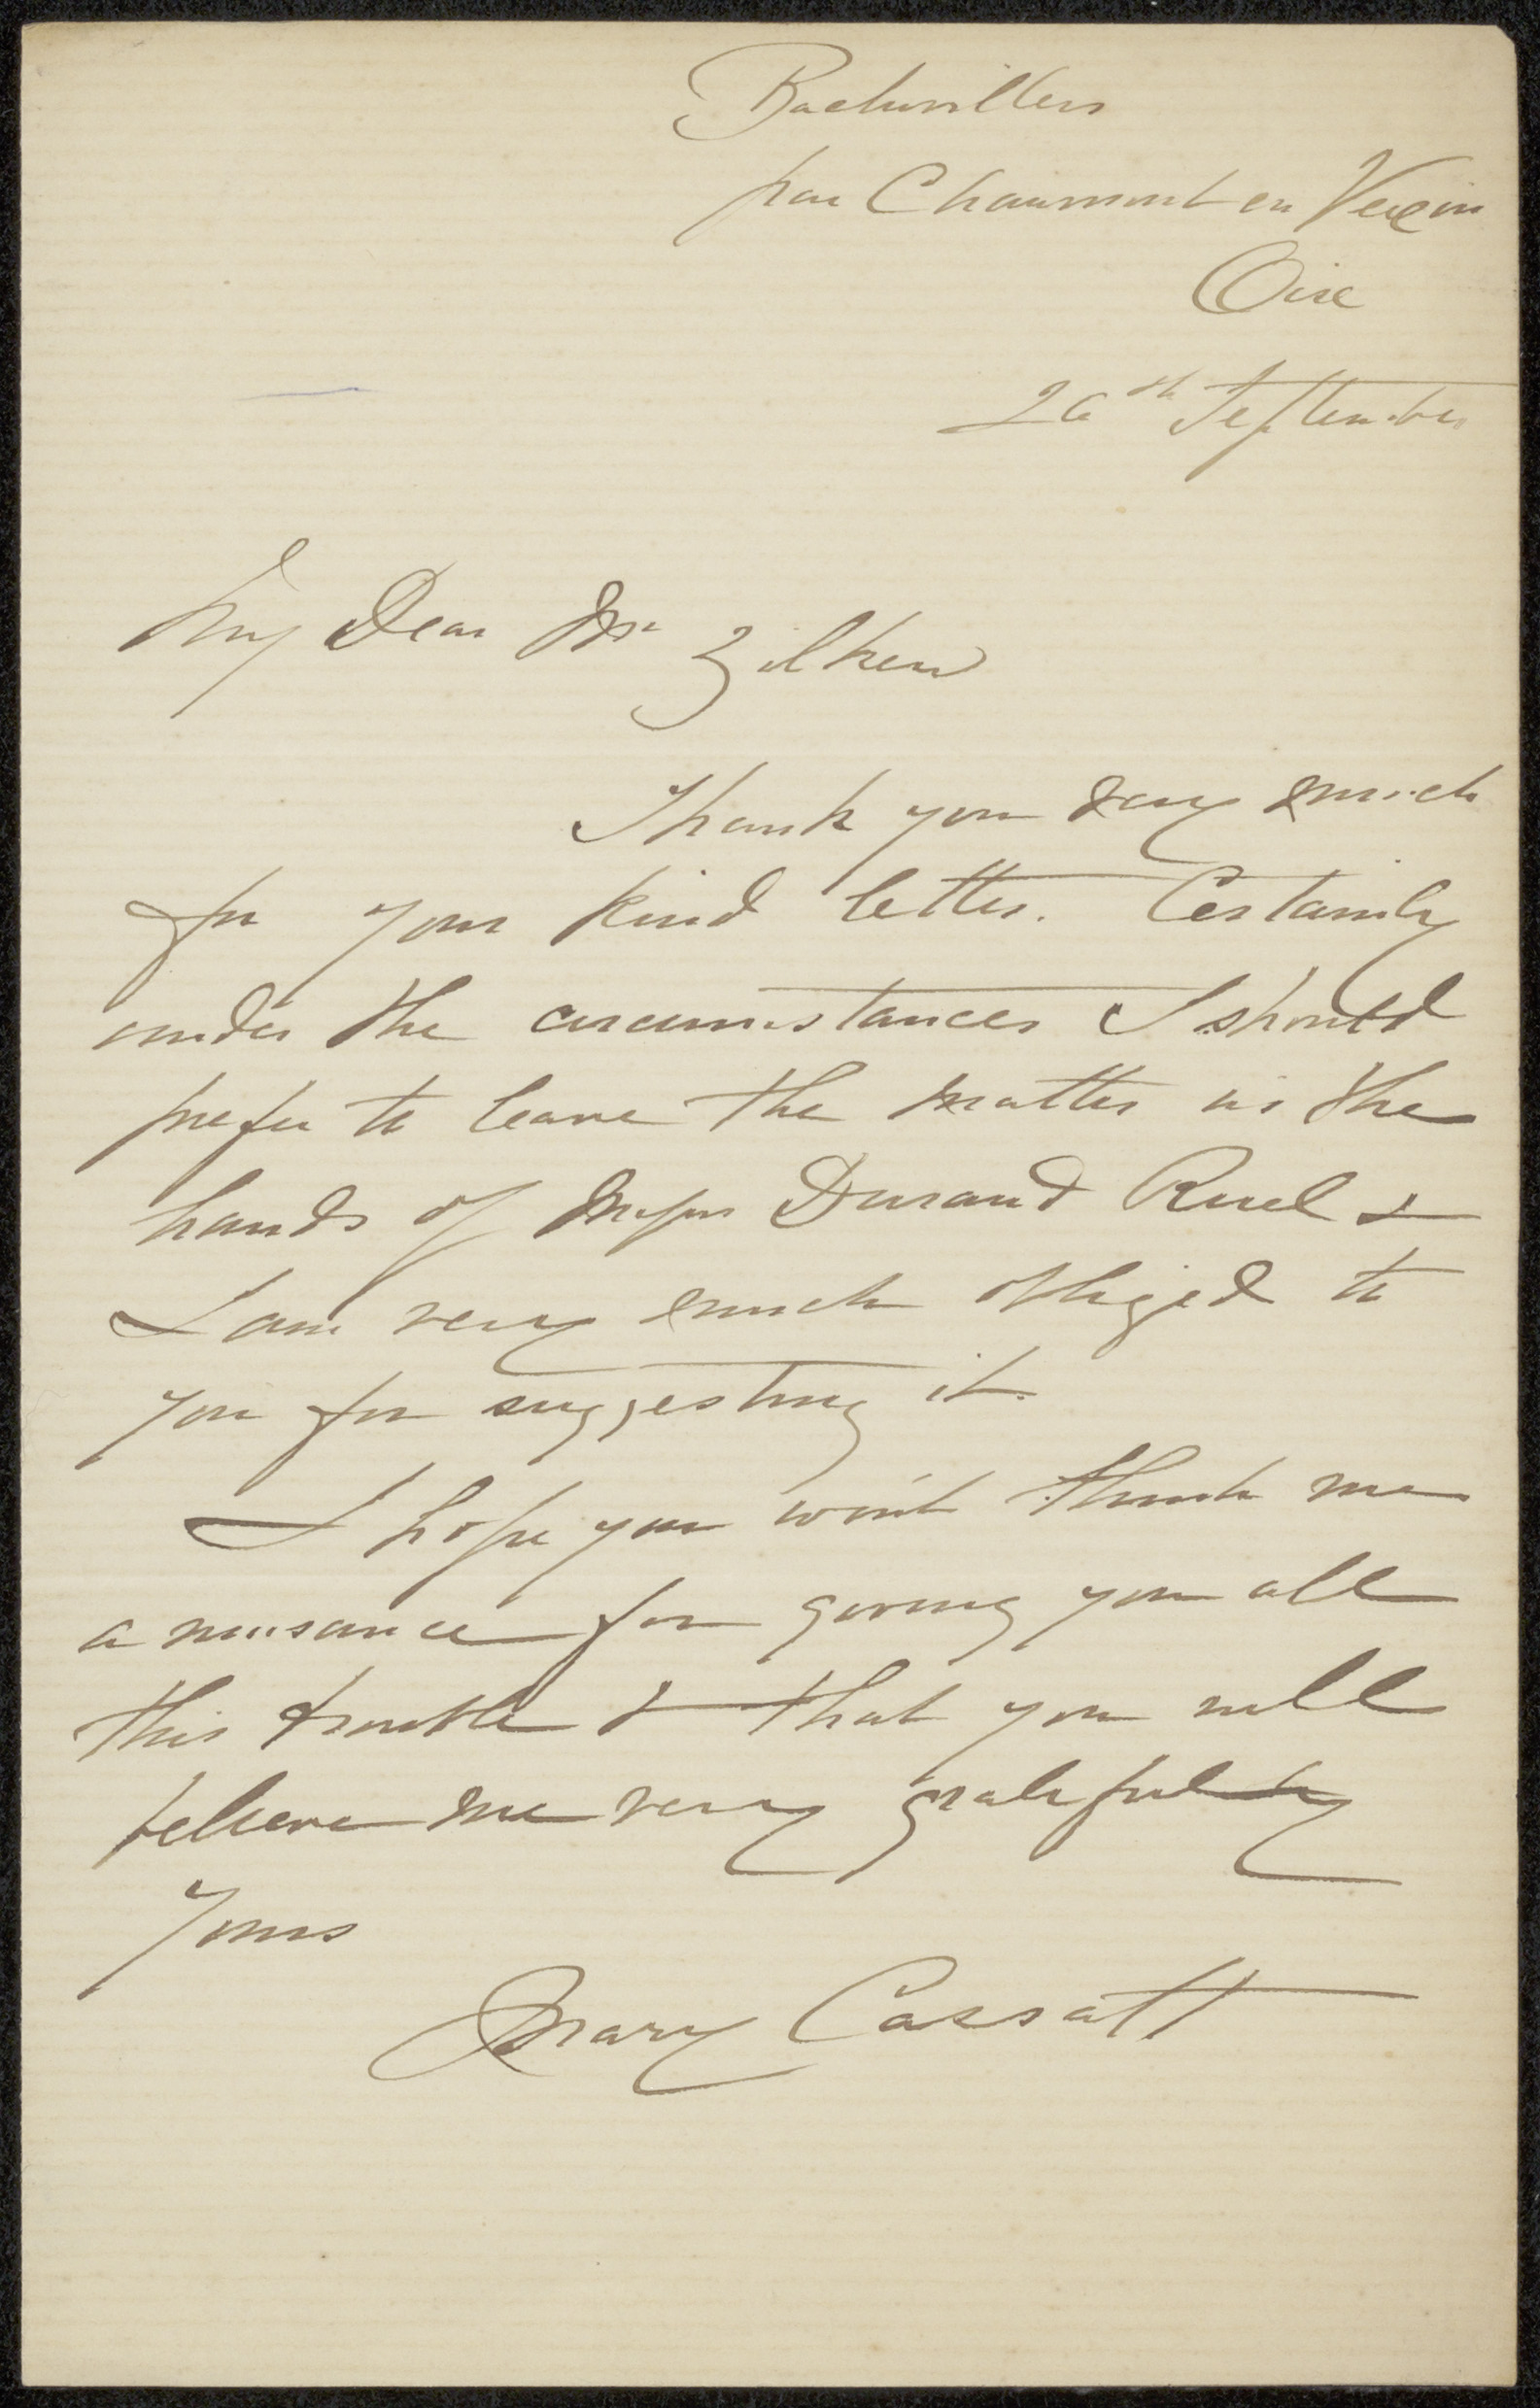 Bachivillers
par Chaumont en Vexin
Oise
26th September
My Dear Mr Zilken
Thank you very much
for your kind letter. Certainly
under the circumstances I should
prefer to leave the matter in the
hands of Messrs Durand Ruel &
I am very much obliged to
you for suggesting it.
I hope you wont think me
a nuisance for giving you all
this trouble & that you will
believe me very gratefully
Yours
Mary Cassatt